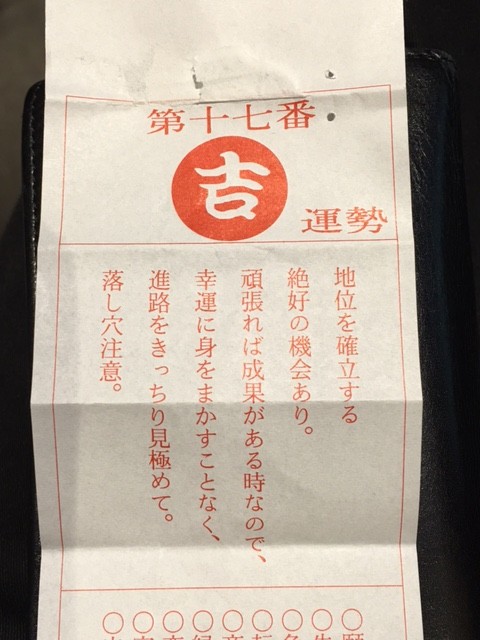 第十七番
吉
運勢
地位を確立する
絶好の機会あり。
頑張れば成果がある時なので、
幸運に身をまかすことなく、
進路をきっちり見極めて。
落し穴注意。